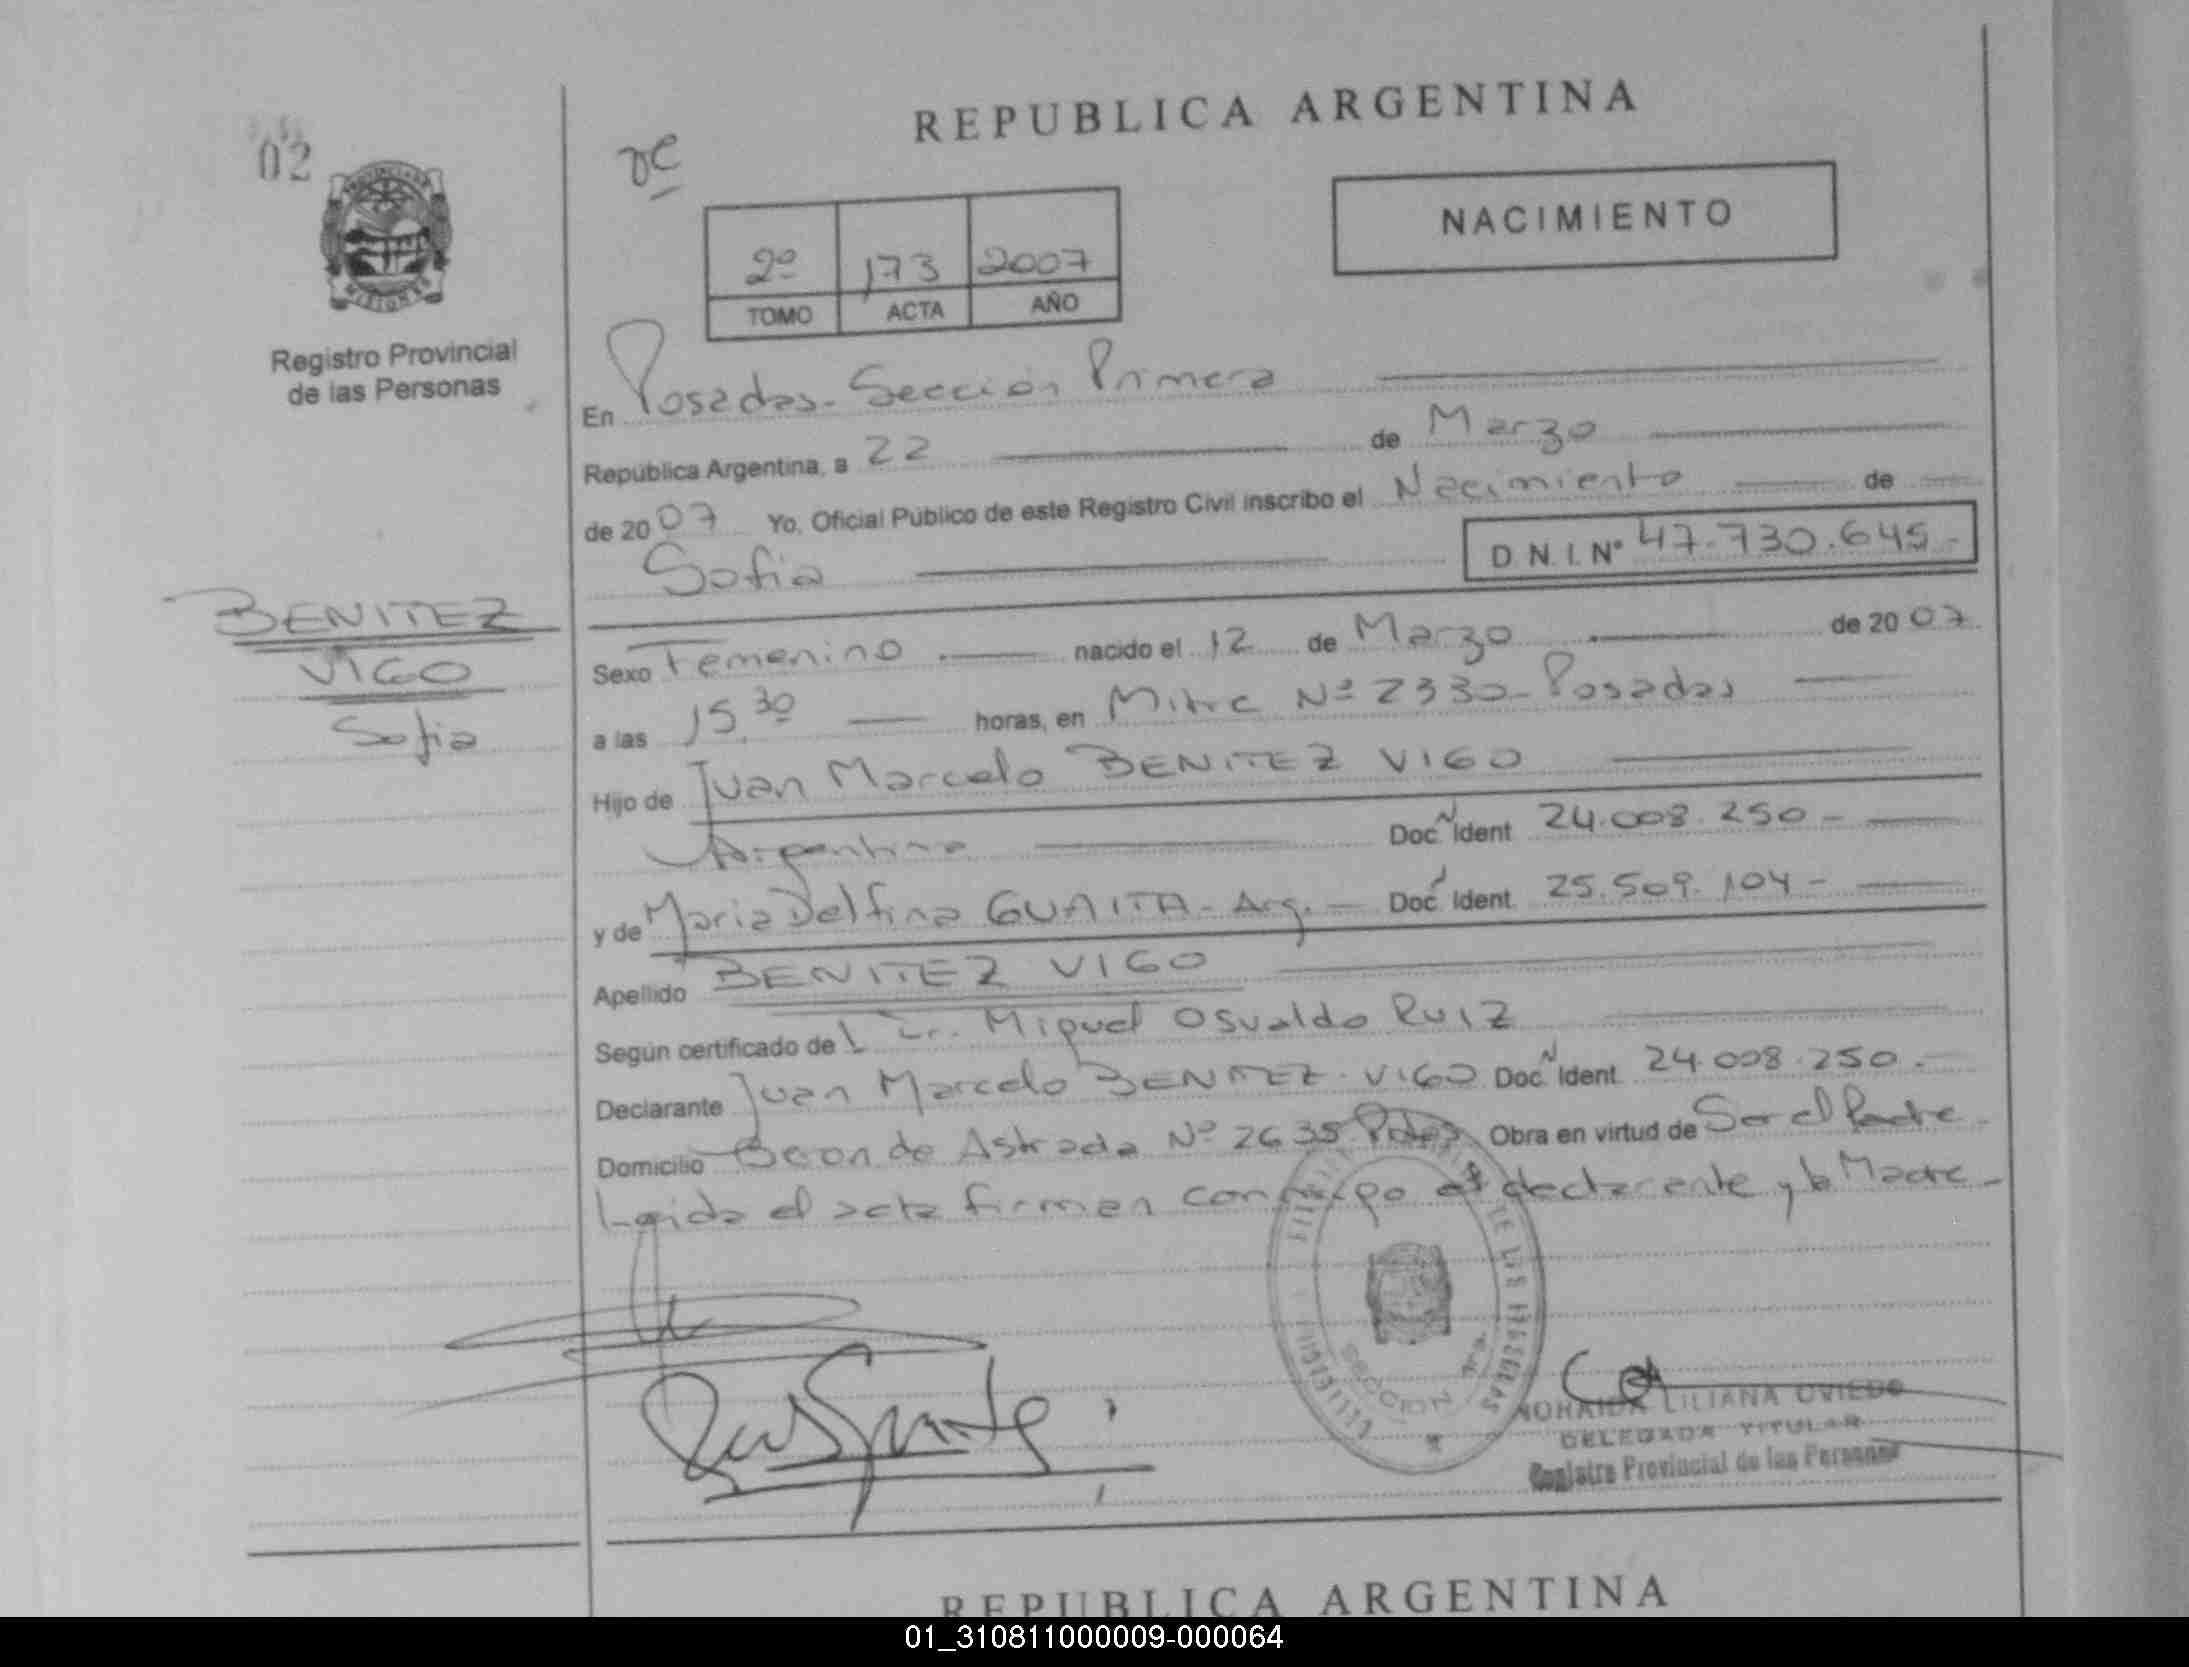 REPUBLICA ARGENTINA
02
PROVINCIA DE
MISIONES
Registro Provincial
de las Personas
NACIMIENTO
2º 173 2007
TOMO ACTA AÑO
En Posadas - Sección Primera
República Argentina, a 22 de Marzo
de 2007 Yo, Oficial Público de este Registro Civil inscribo el Nacimiento de
Sofia D.N.I. Nº 47.730.645.-
BENITEZ
VIGO
Sofia
Sexo Femenino nacido el 12 de Marzo de 2007
a las 15,30 horas, en Mitre Nº 2330 - Posadas
Hijo de Juan Marcelo BENITEZ VIGO
Argentino Doc. Ident. 24.008.250 -
y de Maria Delfina GUAITA - Arg. - Doc. Ident. 25.509.104 -
Apellido BENITEZ VIGO
Según certificado de Miguel Osvaldo RUIZ
Declarante Juan Marcelo BENITEZ VIGO Doc. Ident. 24.008.250.-
Domicilio Beron de Astrada Nº 2635 Obra en virtud de Ser el Padre
Leida el acta firman conmigo el declarante y la Madre -
SECCION
NORAIDA LILIANA OVIEDO
DELEGADA TITULAR
Registro Provincial de las Personas
REPUBLICA ARGENTINA
01_310811000009-000064